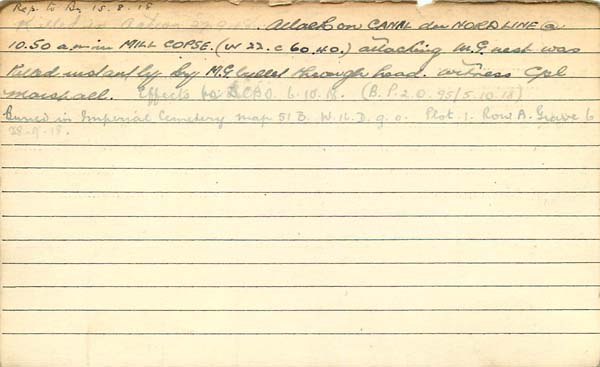 Rep. to Bn 15.8.18
Killed in Action Attack on CANAL du NORD LINE @
10.50 a.m in MILL COPSE. (W 22. c 60.40.) attacking M.G nest was
killed instantly by M.G bullet through head. witness Cpl
Marshall. Effects to 6.10.18. (B.P.2.0.95/5.10.18)
Buried in Imperial Cemetery map 51B. W.16.D.9.0. Plot 1. Row A. Grave 6
28.9.18.